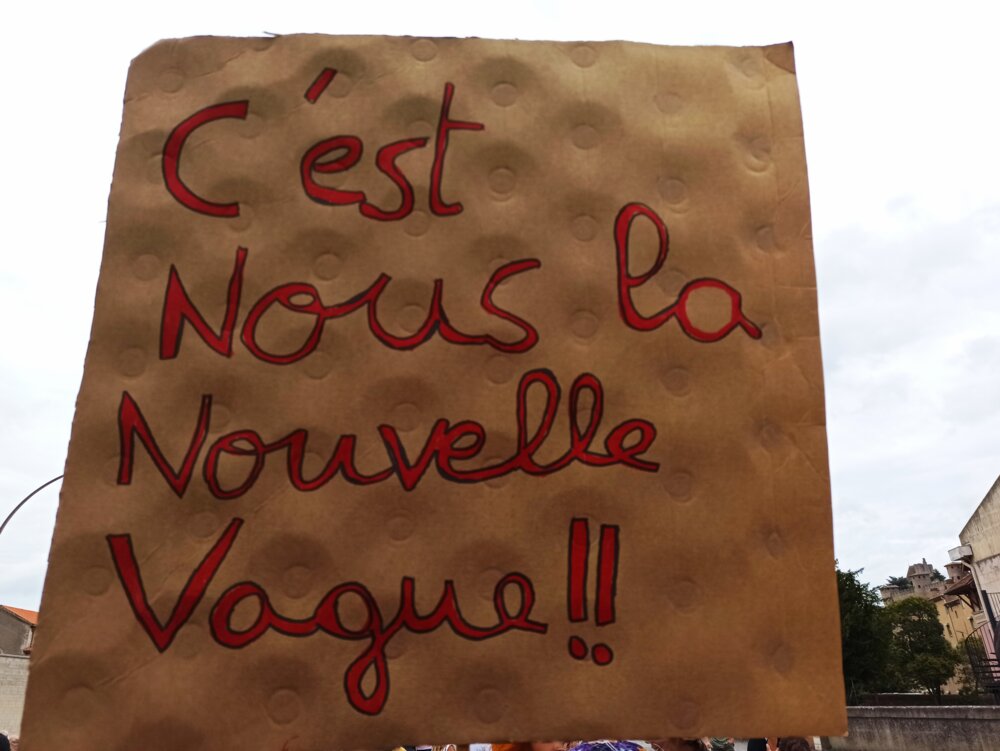 C'est
Nous la
Nouvelle
Vague!!